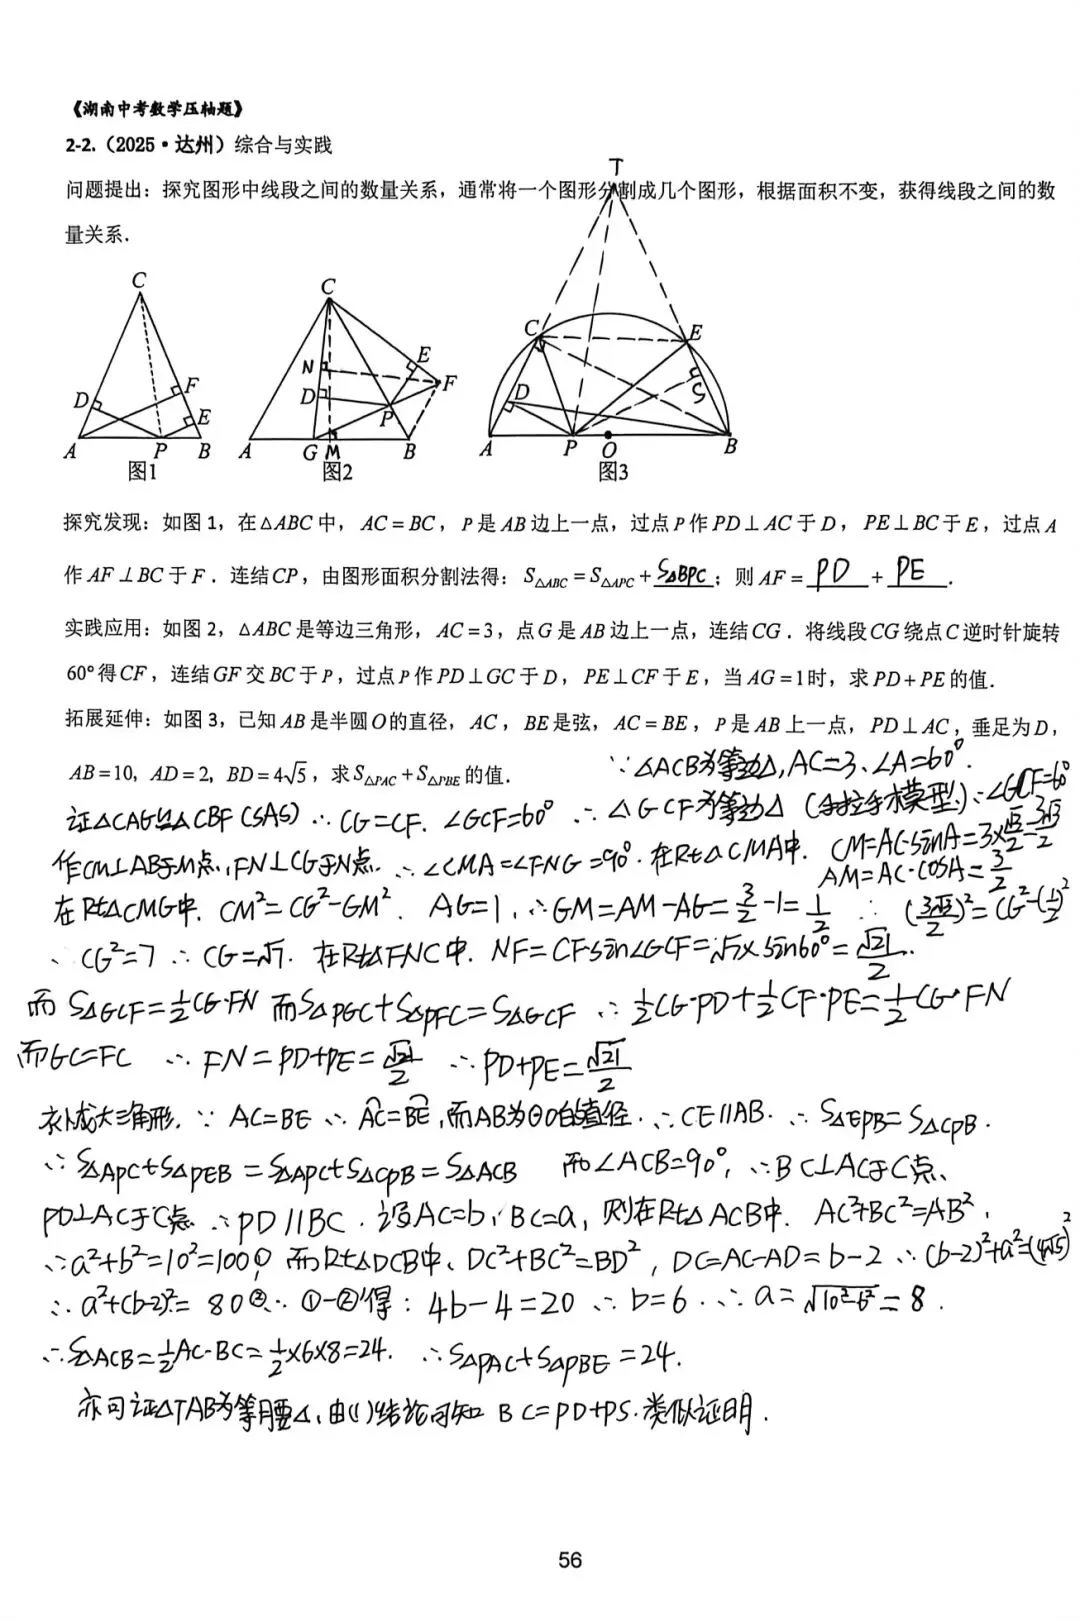 《湖南中考数学压轴题》
2-2.（2025·达州）综合与实践
T
问题提出：探究图形中线段之间的数量关系，通常将一个图形分割成几个图形，根据面积不变，获得线段之间的数
量关系.
C
D
F
E
A
P
B
图1
C
N
D
E
F
P
A
G
M
B
图2
C
E
D
S
A
P
O
B
图3
探究发现：如图1，在△ABC中，AC=BC，P是AB边上一点，过点P作PD⊥AC于D，PE⊥BC于E，过点A
作AF⊥BC于F．连结CP，由图形面积分割法得：S△ABC=S△APC+S△BPC；则AF=PD+PE．
实践应用：如图2，△ABC是等边三角形，AC=3，点G是AB边上一点，连结CG．将线段CG绕点C逆时针旋转
60°得CF，连结GF交BC于P，过点P作PD⊥GC于D，PE⊥CF于E，当AG=1时，求PD+PE的值．
拓展延伸：如图3，已知AB是半圆O的直径，AC，BE是弦，AC=BE，P是AB上一点，PD⊥AC，垂足为D，
AB=10，AD=2，BD=4√5，求S△PAC+S△PBE的值．
∵△ACB为等边△,AC=3、∠A=60°.
证△CAG≌△CBF(SAS) ∴CG=CF. ∠GCF=60° ∴△GCF为等边△(手拉手模型)∴∠GCF=60°
作CM⊥AB于M点,FN⊥CG于N点. ∴∠CMA=∠FNG=90°. 在Rt△CMA中. CM=AC·sinA=3×√3/2=3√3/2
AM=AC·cosA=3/2
在Rt△CMG中. CM²=CG²-GM². AG=1, ∴GM=AM-AG=3/2-1=1/2 ∴(3√3/2)²=CG²-(1/2)²
∴CG²=7 ∴CG=√7. 在Rt△FNC中. NF=CFsin∠GCF=√7×sin60°=√21/2.
而S△GCF=1/2CG·FN 而S△PGC+S△PFC=S△GCF ∴1/2CG·PD+1/2CF·PE=1/2CG·FN
而GC=FC ∴FN=PD+PE=√21/2 ∴PD+PE=√21/2
补成大三角形. ∵AC=BE ∴AC=BE,而AB为⊙O的直径. ∴CE∥AB. ∴S△EPB=S△CPB.
∴S△APC+S△PEB=S△APC+S△CPB=S△ACB 而∠ACB=90°, ∴BC⊥AC于C点、
PD⊥AC于C点 ∴PD∥BC. 设AC=b, BC=a, 则在Rt△ACB中. AC²+BC²=AB²,
∴a²+b²=10²=100①, 而Rt△DCB中、DC²+BC²=BD², DC=AC-AD=b-2 ∴(b-2)²+a²=(4√5)²
∴a²+(b-2)²=80②∴①-②得：4b-4=20 ∴b=6. ∴a=√10²-b²=8.
∴S△ACB=1/2AC·BC=1/2×6×8=24. ∴S△PAC+S△PBE=24.
亦可证△TAB为等腰△,由(1)结论可知BC=PD+PS.类似证明.
56